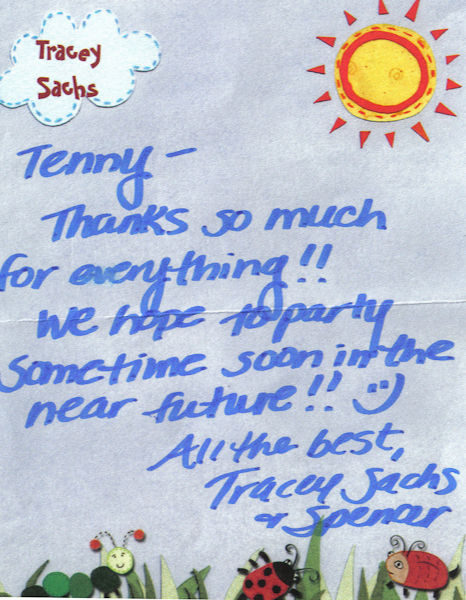 Tracey
Sachs
Tenny -
Thanks so much
for everything!!
We hope to party
sometime soon in the
near future!! :)
All the best,
Tracey Sachs
& Spencer